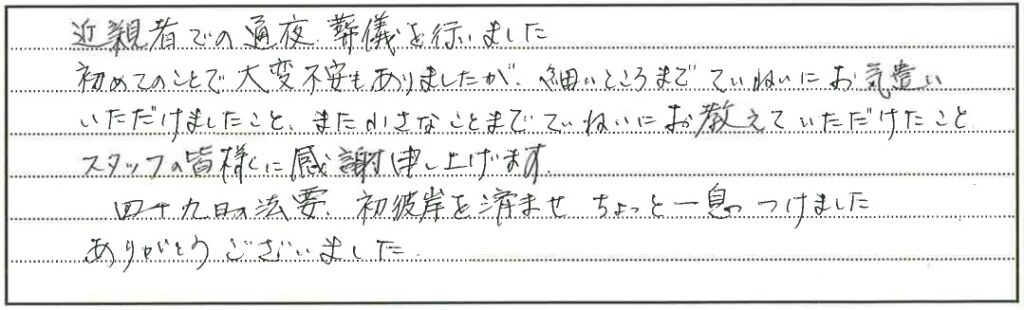 近親者での通夜、葬儀を行いました
初めてのことで大変不安もありましたが、細いところまでていねいにお気遣い
いただけましたこと、また小さなことまでていねいにお教えていただけたこと
スタッフの皆様に感謝申し上げます。
四十九日の法要、初彼岸を済ませ ちょっと一息つけました
ありがとうございました。